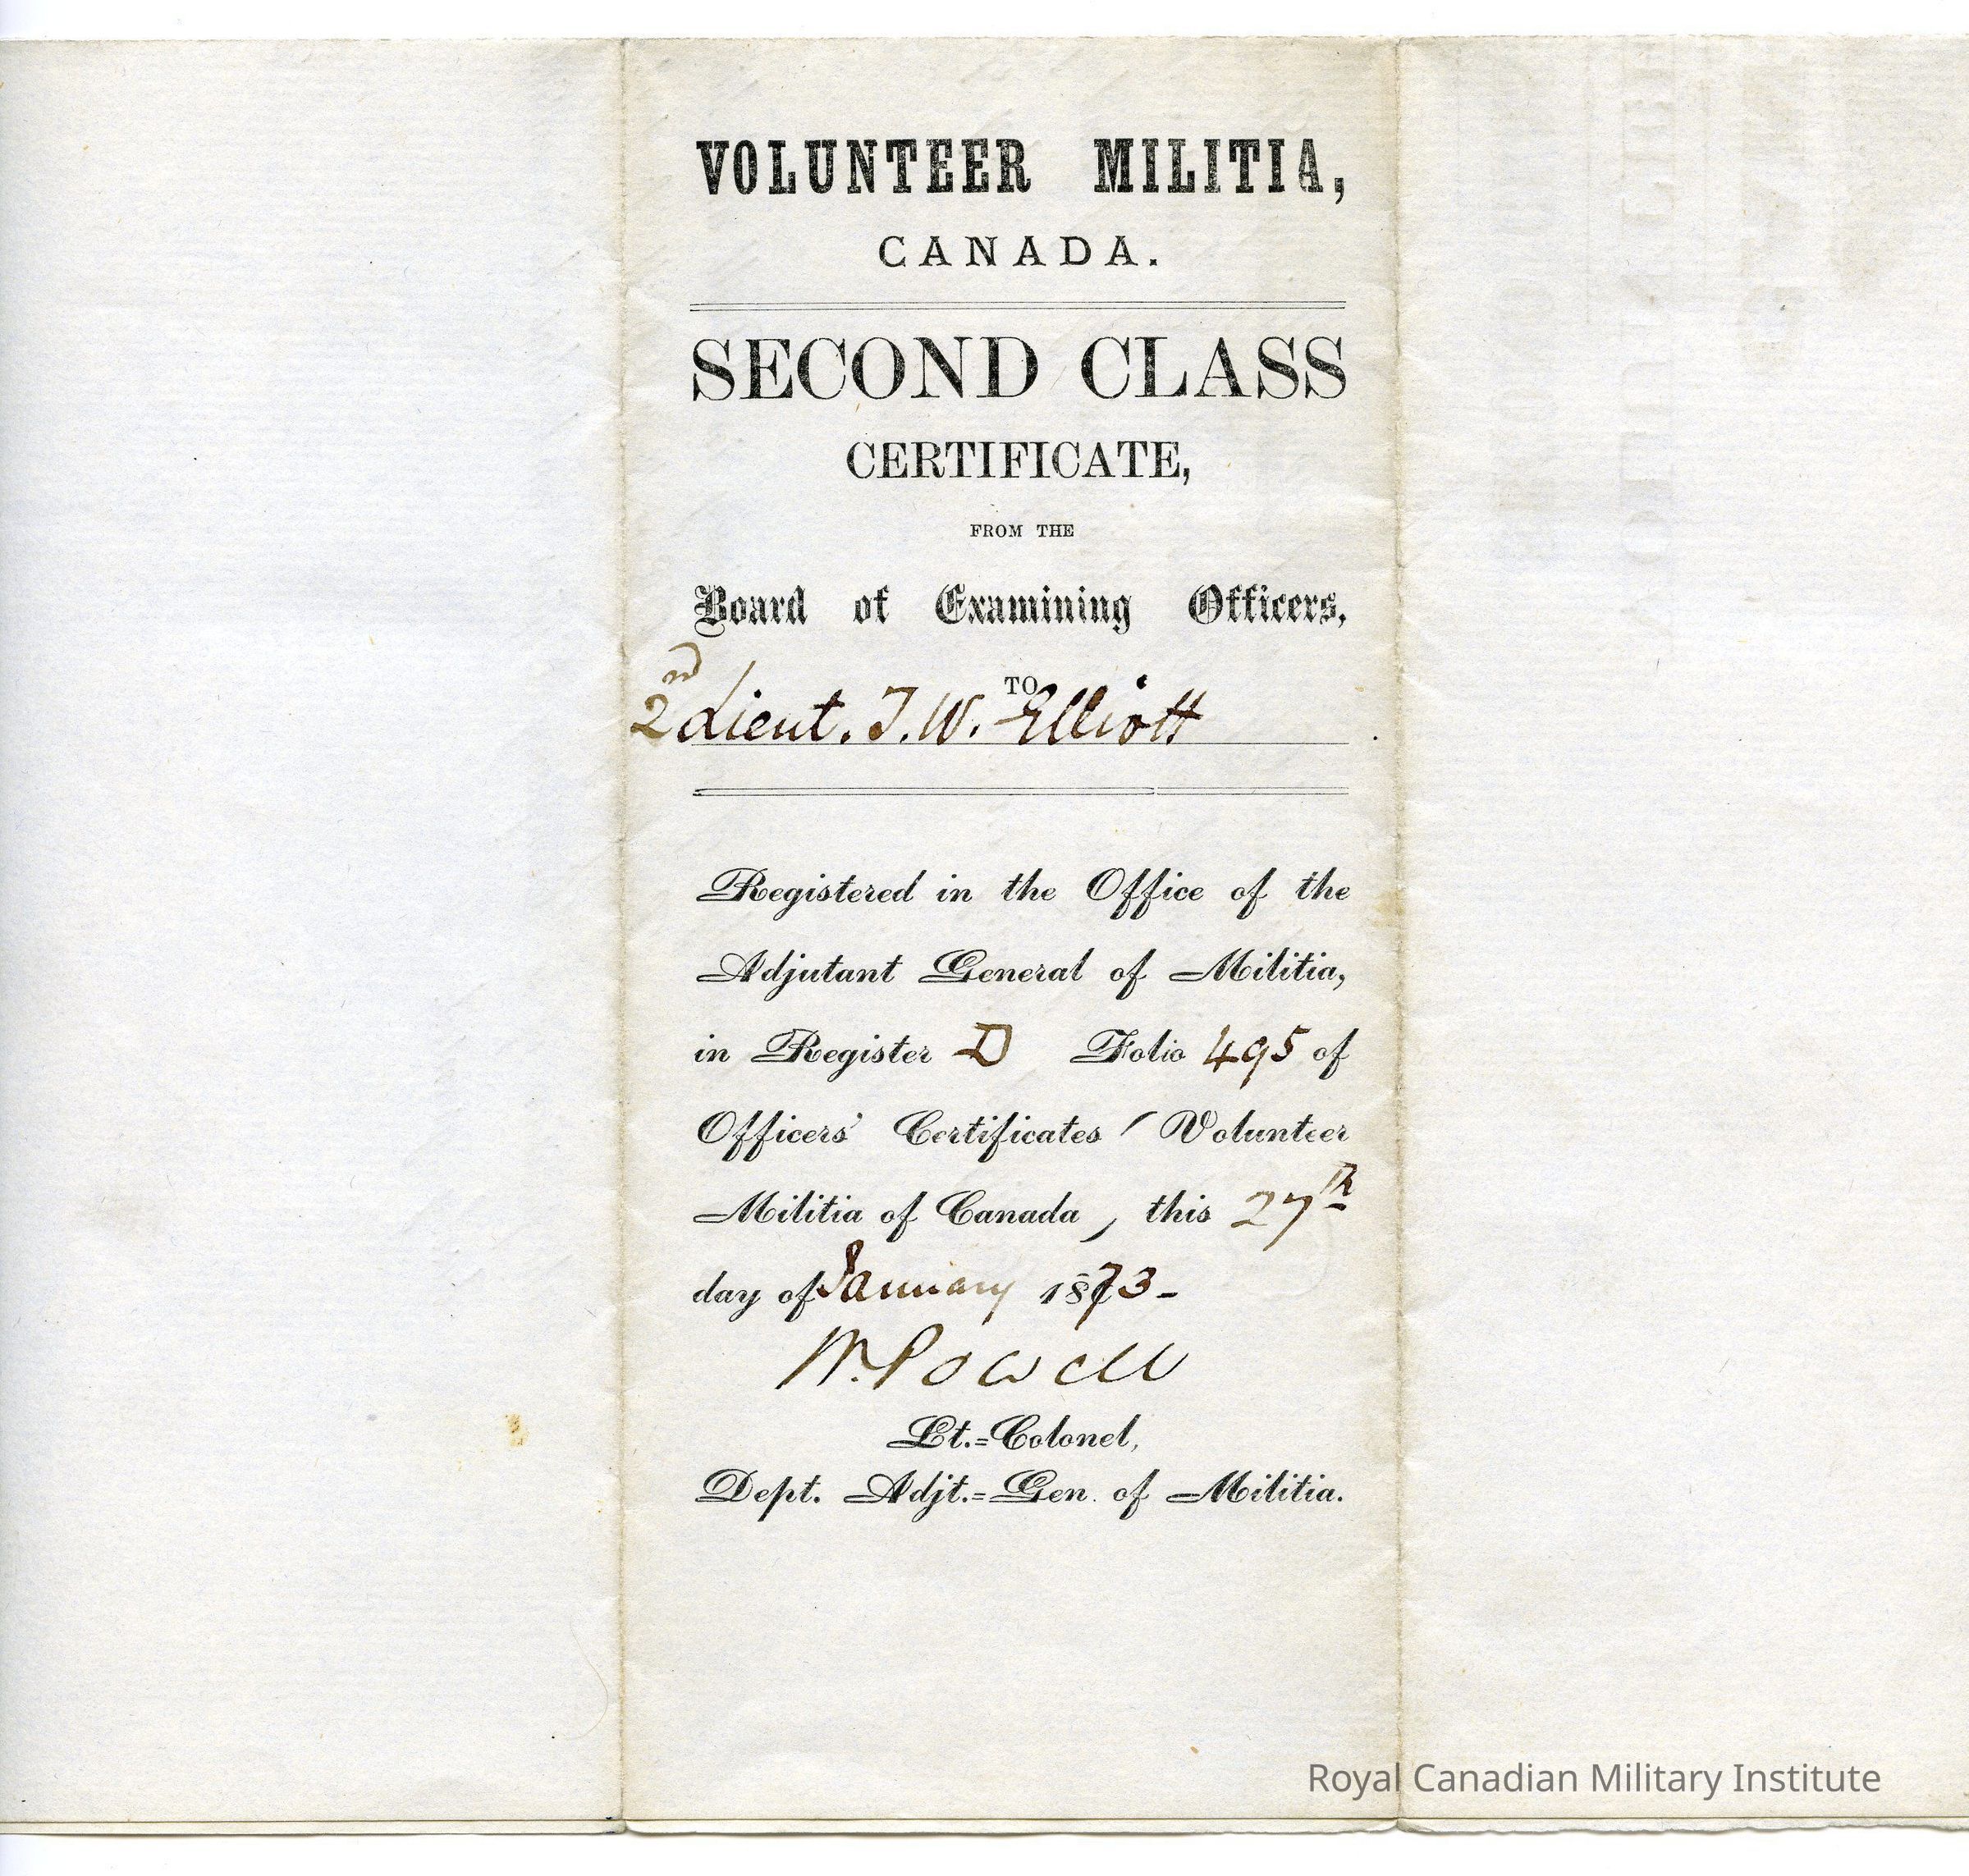 VOLUNTEER MILITIA,
CANADA.
SECOND CLASS
CERTIFICATE,
FROM THE
Board of Examining Officers,
TO
2nd Lieut. J. W. Elliott
Registered in the Office of the
Adjutant General of Militia,
in Register D Folio 495 of
Officers' Certificates / Volunteer
Militia of Canada, this 27th
day of January 1873-
W. Powell
Lt.=Colonel,
Dept. Adjt.=Gen. of Militia.
Royal Canadian Military Institute